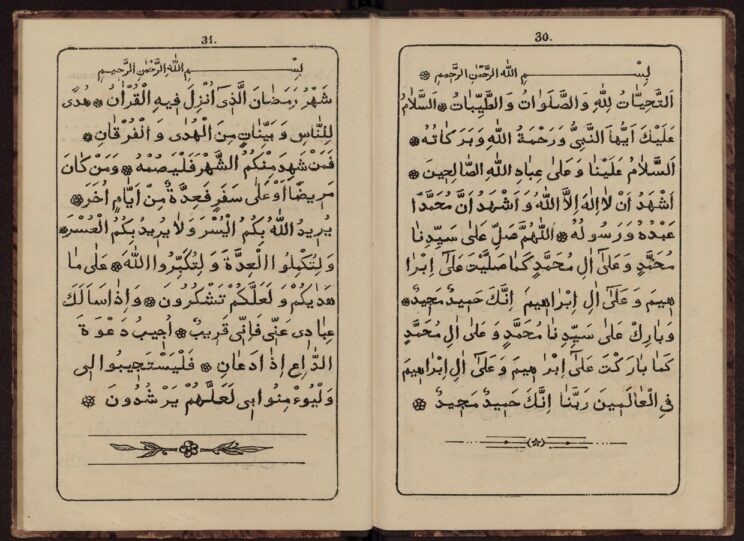 30.
بِسْــــــمِ اللهِ الرَّحْمٰنِ الرَّحِيمِ ۞
اَلتَّحِيَّاتُ لِلّٰهِ وَالصَّلَوَاتُ وَالطَّيِّبَاتُ ۞ اَلسَّلَامُ
عَلَيْكَ اَيُّهَا النَّبِيُّ وَرَحْمَةُ اللّٰهِ وَبَرَكَاتُهُ ۞
اَلسَّلَامُ عَلَيْنَا وَعَلٰى عِبَادِ اللّٰهِ الصَّالِحِينَ ۞
اَشْهَدُ اَنْ لَا اِلٰهَ اِلَّا اللّٰهُ وَاَشْهَدُ اَنَّ مُحَمَّدًا
عَبْدُهُ وَرَسُولُهُ ۞ اَللّٰهُمَّ صَلِّ عَلٰى سَيِّدِنَا
مُحَمَّدٍ وَعَلٰٓى اٰلِ مُحَمَّدٍ كَمَا صَلَّيْتَ عَلٰٓى اِبْرَا
هِيمَ وَعَلٰٓى اٰلِ اِبْرَاهِيمَ اِنَّكَ حَمِيدٌ مَجِيدٌ ۞
وَبَارِكْ عَلٰى سَيِّدِنَا مُحَمَّدٍ وَعَلٰى اٰلِ مُحَمَّدٍ
كَمَا بَارَكْتَ عَلٰٓى اِبْرَاهِيمَ وَعَلٰٓى اٰلِ اِبْرَاهِيمَ
فِى الْعَالَمِينَ رَبَّنَا اِنَّكَ حَمِيدٌ مَجِيدٌ ۞
31.
بِسْــــــمِ اللهِ الرَّحْمٰنِ الرَّحِيمِ
شَهْرُ رَمَضَانَ الَّذِىٓ اُنْزِلَ فِيهِ الْقُرْاٰنُ ۞ هُدًى
لِلنَّاسِ وَبَيِّنَاتٍ مِنَ الْهُدٰى وَالْفُرْقَانِ ۞
فَمَنْ شَهِدَ مِنْكُمُ الشَّهْرَ فَلْيَصُمْهُ ۞ وَمَنْ كَانَ
مَرِيضًا اَوْ عَلٰى سَفَرٍ فَعِدَّةٌ مِنْ اَيَّامٍ اُخَرَ ۞
يُرِيدُ اللّٰهُ بِكُمُ الْيُسْرَ وَلَا يُرِيدُ بِكُمُ الْعُسْرَ ۞
وَلِتُكْمِلُوا الْعِدَّةَ وَلِتُكَبِّرُوا اللّٰهَ ۞ عَلٰى مَا
هَدٰيكُمْ وَلَعَلَّكُمْ تَشْكُرُونَ ۞ وَاِذَا سَاَلَكَ
عِبَادِى عَنِّى فَاِنِّى قَرِيبٌ ۞ اُجِيبُ دَعْوَةَ
الدَّاعِ اِذَا دَعَانِ ۞ فَلْيَسْتَجِيبُوا لِى
وَلْيُوءْمِنُوا بِى لَعَلَّهُمْ يَرْشُدُونَ ۞